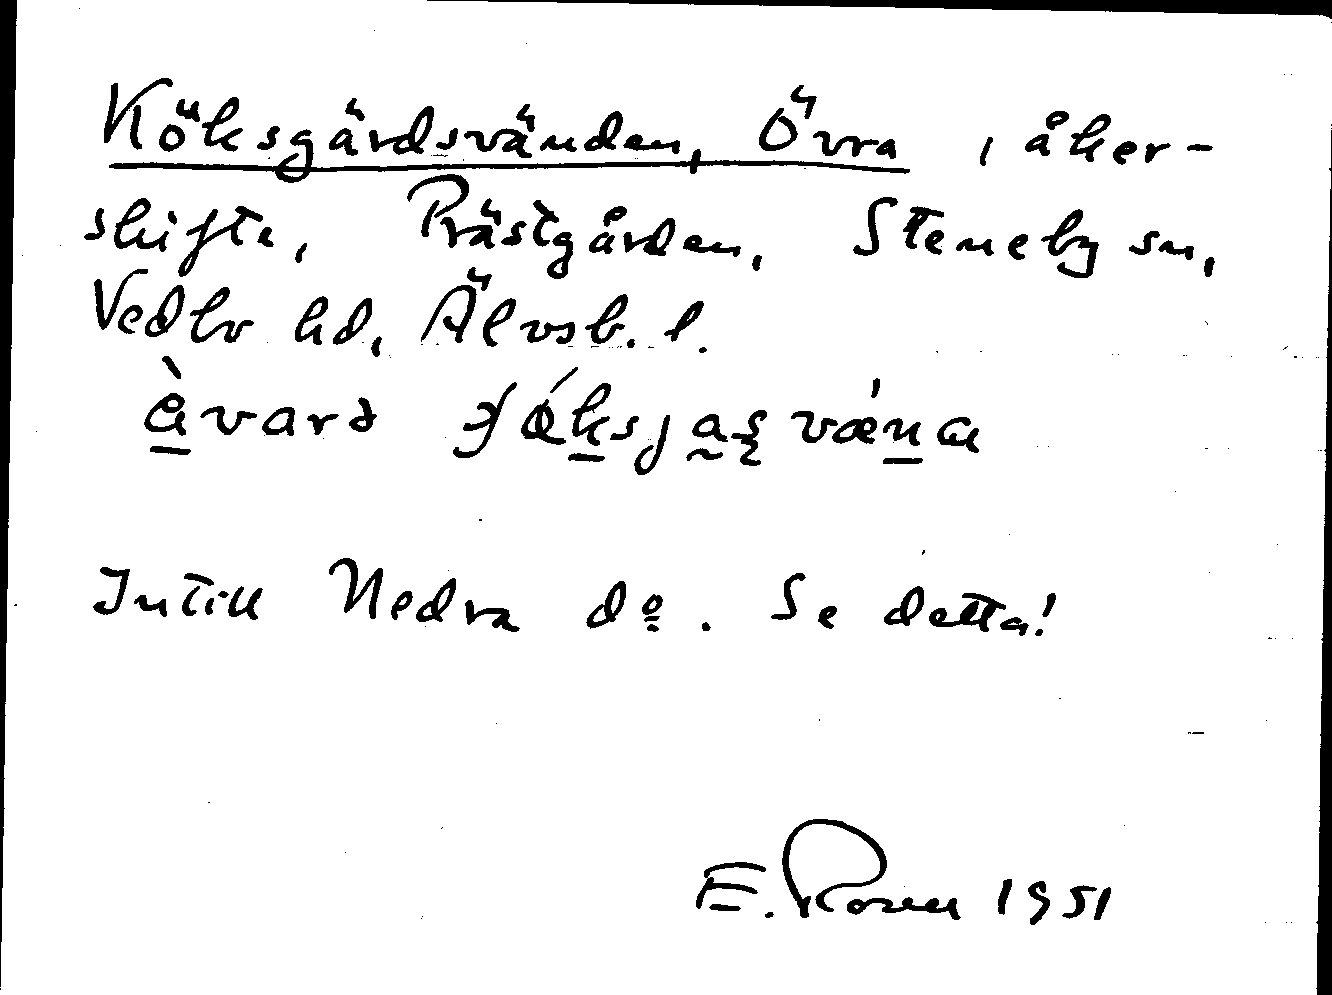 Köksgärdsvänden, Övra, åker-
skifte, Prästgården, Steneby sn,
Vedbo hd, Älvsb. l.
Intill Nedra do. Se detta!
E. Rosen 1951